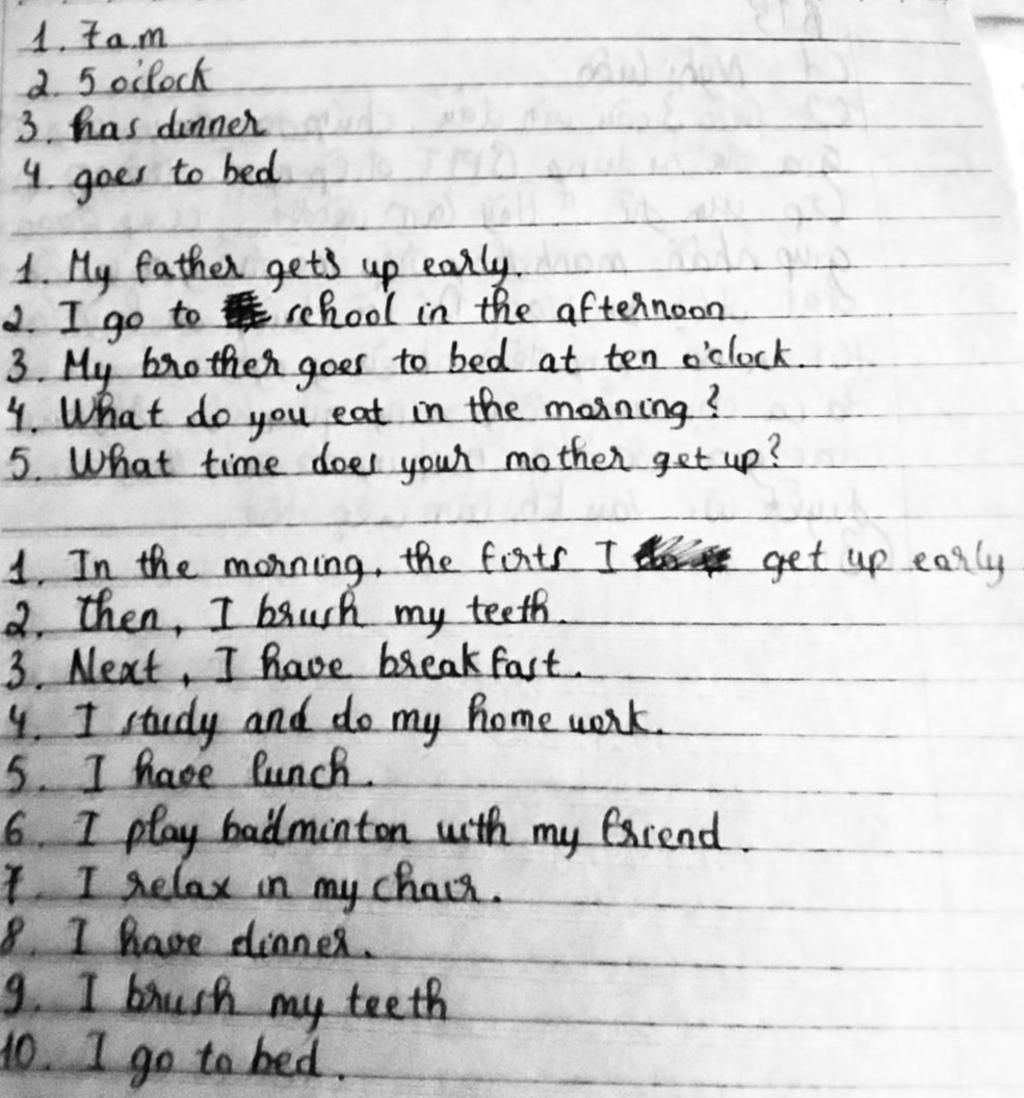 1. 7 a.m
2. 5 o'clock
3. has dinner
4. goes to bed
1. My father gets up early.
2. I go to school in the afternoon
3. My brother goes to bed at ten o'clock.
4. What do you eat in the morning?
5. What time does your mother get up?
1. In the morning, the firts I get up early
2. Then, I brush my teeth.
3. Next, I have breakfast.
4. I study and do my home work.
5. I have lunch.
6. I play badminton with my friend.
7. I relax in my chair.
8. I have dinner.
9. I brush my teeth
10. I go to bed.